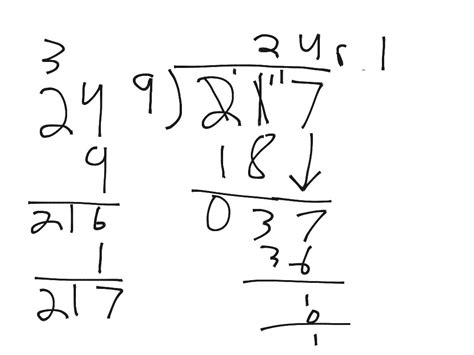 3
24
9
216
1
217
24 r. 1
9)2117
18
037
36
1
0
1